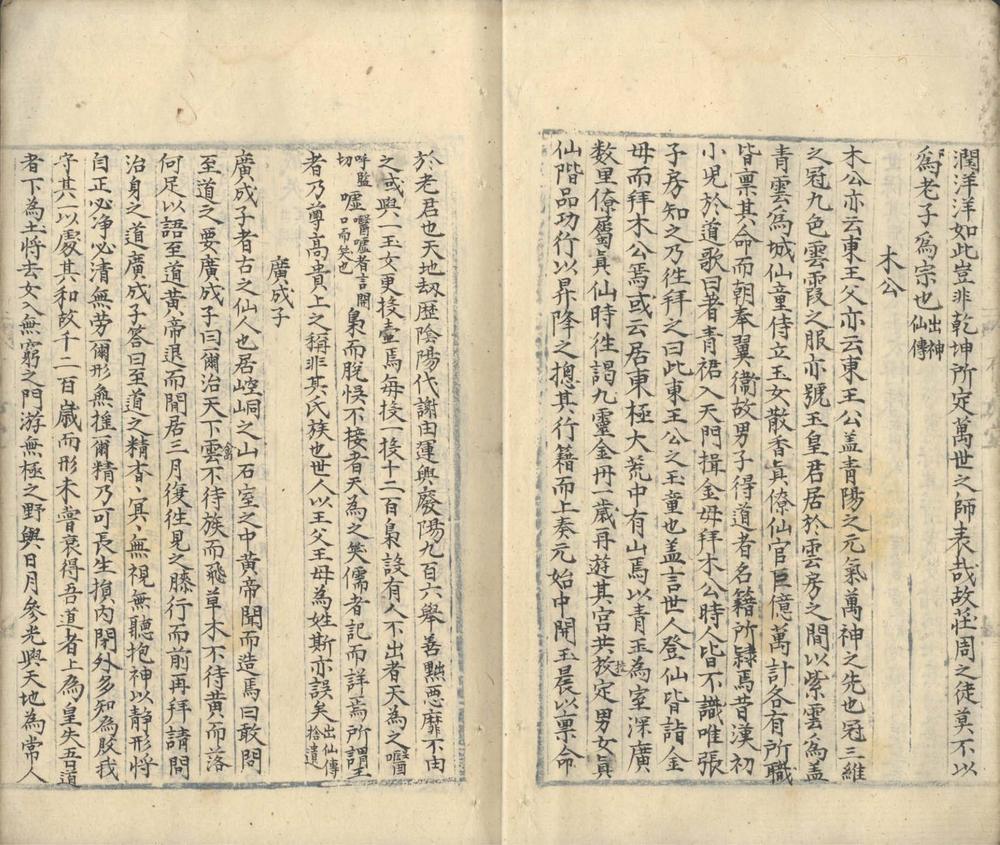 潤洋洋如此豈非乾坤所定萬世之師表哉故莊周之徒莫不以
爲老子爲宗也出神仙傳
木公
木公亦云東王父亦云東王公盖青陽之元氣萬神之先也冠三維
之冠九色雲霞之服亦號玉皇君居於雲房之間以紫雲爲盖
青雲爲城仙童侍立玉女散香眞僚仙官巨億萬計各有所職
皆稟其命而朝奉翼衞故男子得道者名籍所隸焉昔漢初
小児於道歌曰着青裙入天門揖金母拜木公時人皆不識唯張
子房知之乃徃拜之曰此東王公之玉童也盖言世人登仙皆詣金
母而拜木公焉或云居東極大荒中有山焉以青玉為室深廣
数里僚屬眞仙時徃謁九靈金丹一歲再遊其宮共挍定男女眞
仙階品功行以昇降之摠其行籍而上奏元始中開玉晨以稟命
於老君也天地刼歴陰陽代謝由運興廢陽九百六舉善黙惡靡不由
之或與一玉女更投壷焉每投一投十二百梟設有人不出者天為之㗨
呼監切噓㗨嘘者言開口而笑也梟而脫悞不接者天為之笑儒者記而詳焉所謂王
者乃尊高貴上之稱非其氏族也世人以王父王母為姓斯亦誤矣出仙傳拾遺
廣成子
廣成子者古之仙人也居崆峒之山石室之中黃帝聞而造焉曰敢問
至道之要廣成子曰爾治天下雲禽不待族而飛草木不待黃而落
何足以語至道黃帝退而閒居三月復徃見之膝行而前再拜請問
治身之道廣成子答曰至道之精杳杳冥冥無視無聽抱神以静形将
自正必净必清無労爾形無揺爾精乃可長生損内閉外多知為敗我
守其一以處其和故千二百歲而形未甞衰得吾道者上為皇失吾道
者下為土将去女入無窮之門游無極之野與日月參光與天地為常人